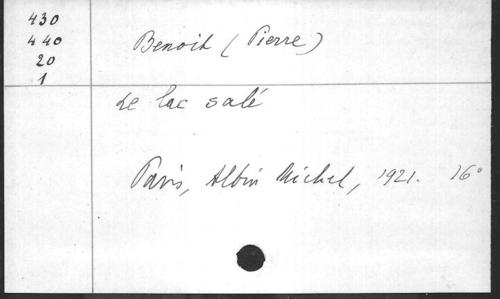 430
440
20
1
Benoit (Pierre)
Le lac salé
Paris, Albin Michel, 1921. 16°